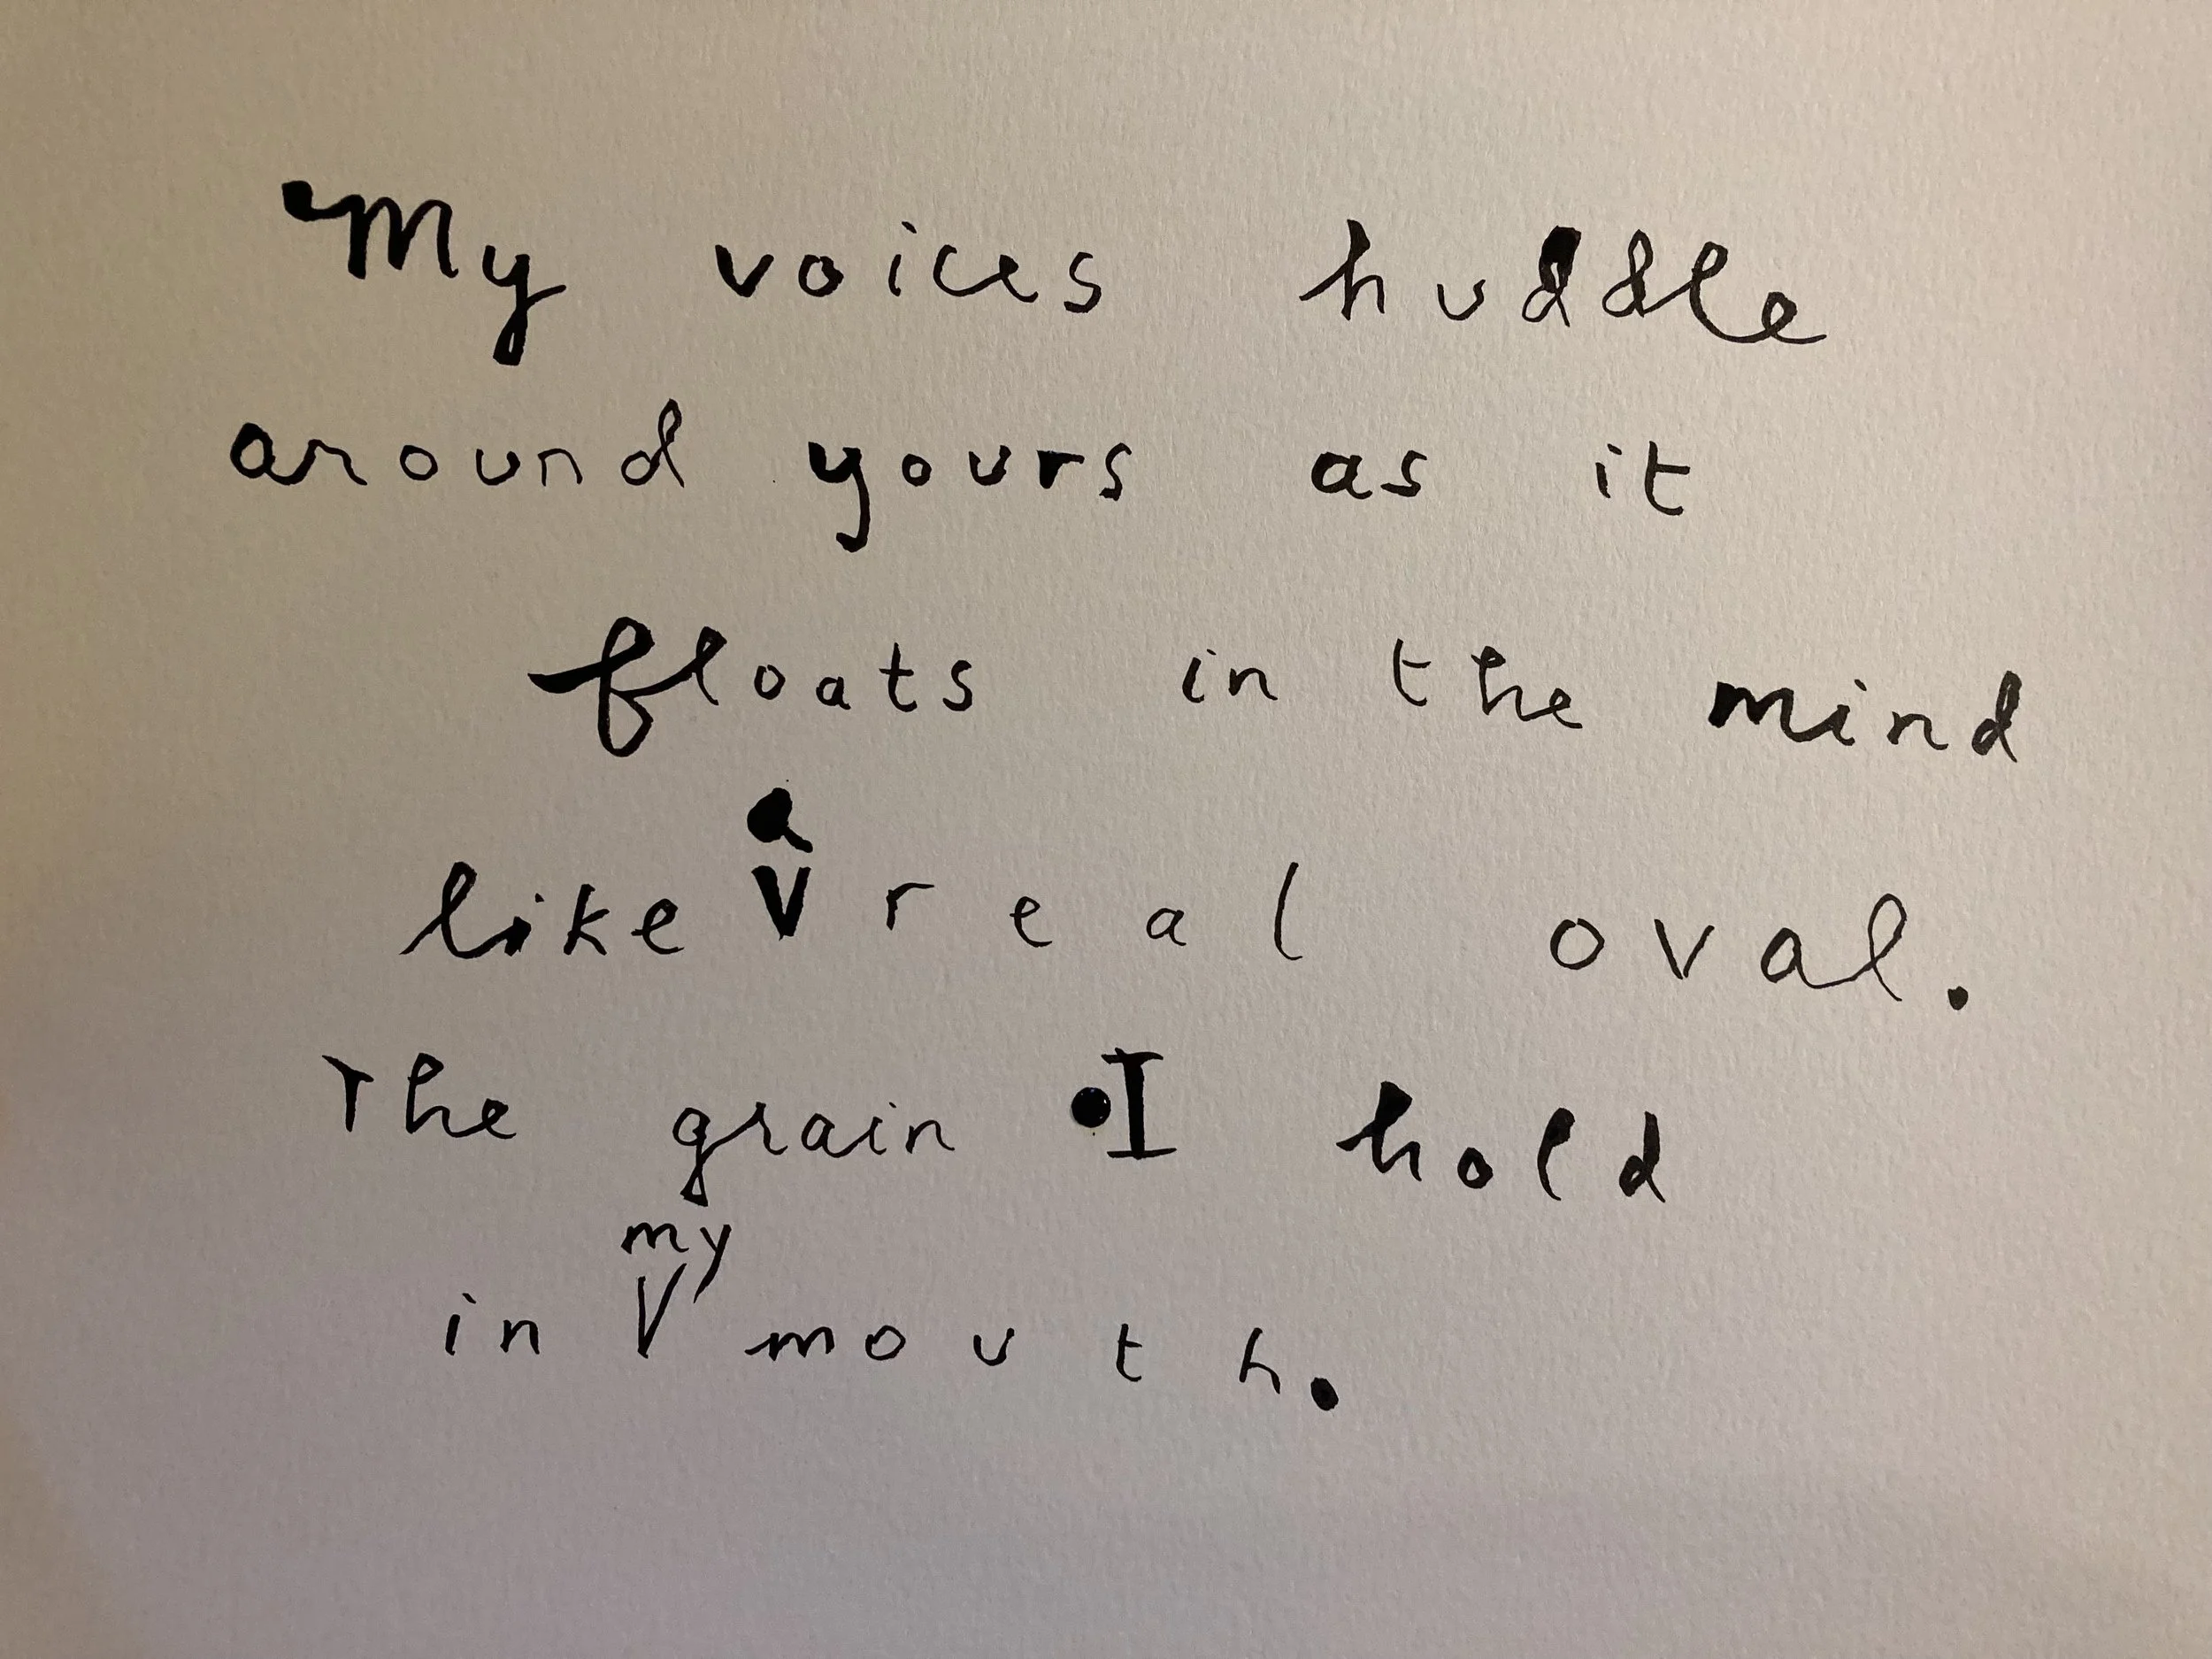 My voices huddle
around yours as it
floats in the mind
like a real oval.
The grain I hold
in my mouth.